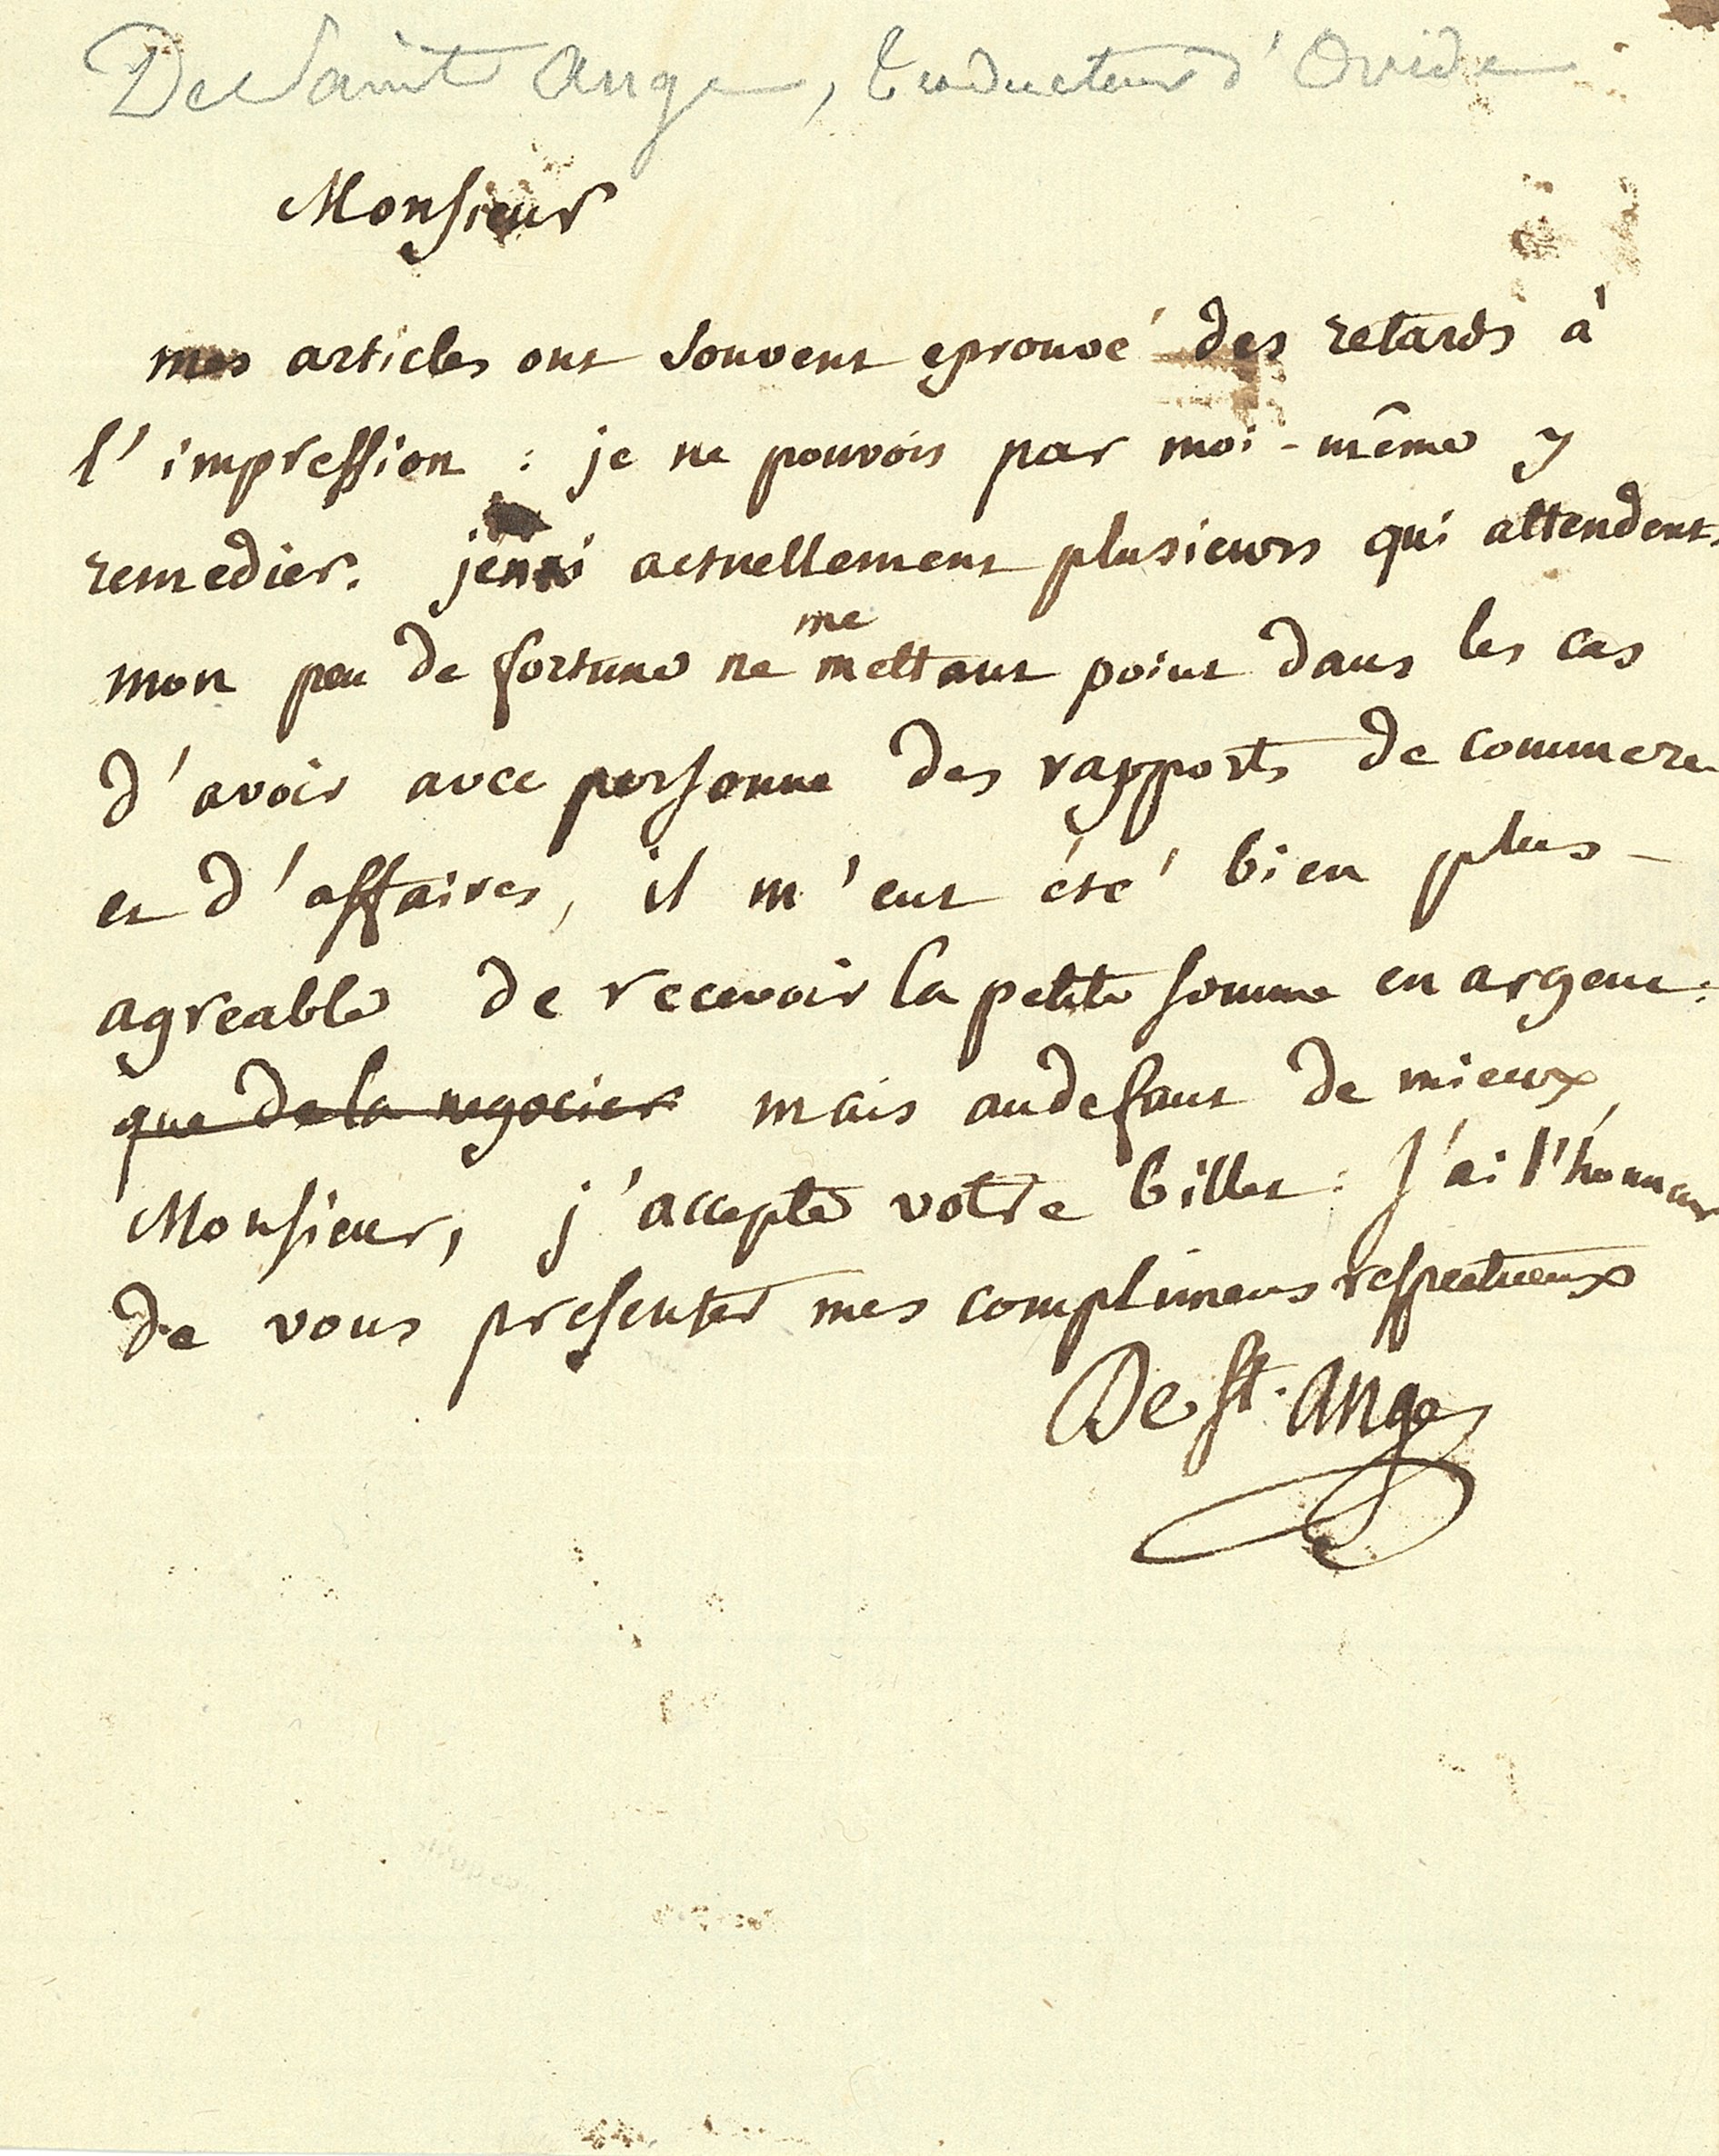 De Saint Ange, traducteur d'Ovide
Monsieur
mes articles ont souvent eprouvé des retards à
l'impression : je ne pouvois par moi-même y
remedier. j'en ai actuellement plusieurs qui attendent.
me
mon peu de fortune ne mettant point dans les cas
d'avoir avec personne des rapports de commerce
et d'affaires, il m'eut été bien plus
agreable de recevoir la petite somme en argent :
que de la negocier mais au defaut de mieux
Monsieur, j'accepte votre billet : J'ai l'honneur
de vous presenter mes complimens respectueux
De St. Ange